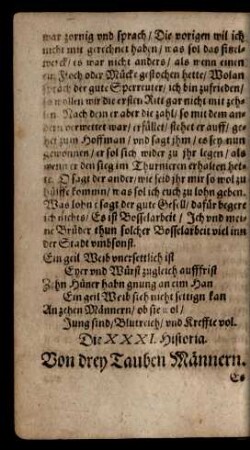 war zornig und sprach / Die vorigen wil ich
nicht mit gerechnet haben / was sol das finckel
werck / es war nicht anders / als wenn einen
ein Floch oder Mücke gestochen hette / Wolan
sprach der gute Sperreuter / ich bin zufrieden /
so wollen wir die ersten Ritt gar nicht mit zeh-
len. Nach dem er aber die zahl / so mit dem an-
dern verwettet war / erfüllet / stehet er auff / ge-
het zum Hoffman / und sagt jhm / es sey nun
gewonnen / er sol sich wider zu jhr legen / als
wenn er den sieg im Thurnieren erhalten het-
te. O sagt der ander / wie seid jhr mir so wol zu
hülffe kommen / was sol ich euch zu lohn geben.
Was lohn ? sagt der gute Gesell / dafür begere
ich nichts / Es ist Bosselarbeit / Ich und mei-
ne Brüder thun solcher Bosselarbeit viel inn
der Stadt umbsonst.
Ein geil Weib unersettlich ist
Eyer und Würst zugleich aufffrist
Zehn Hüner habn gnung an eim Han
Ein geil Weib sich nicht settign kan
An zehen Männern / ob sie wol /
Jung sind / Blutreich / und Kreffte vol.
Die XXXI. Historia.
Von drey Tauben Männern.
Es